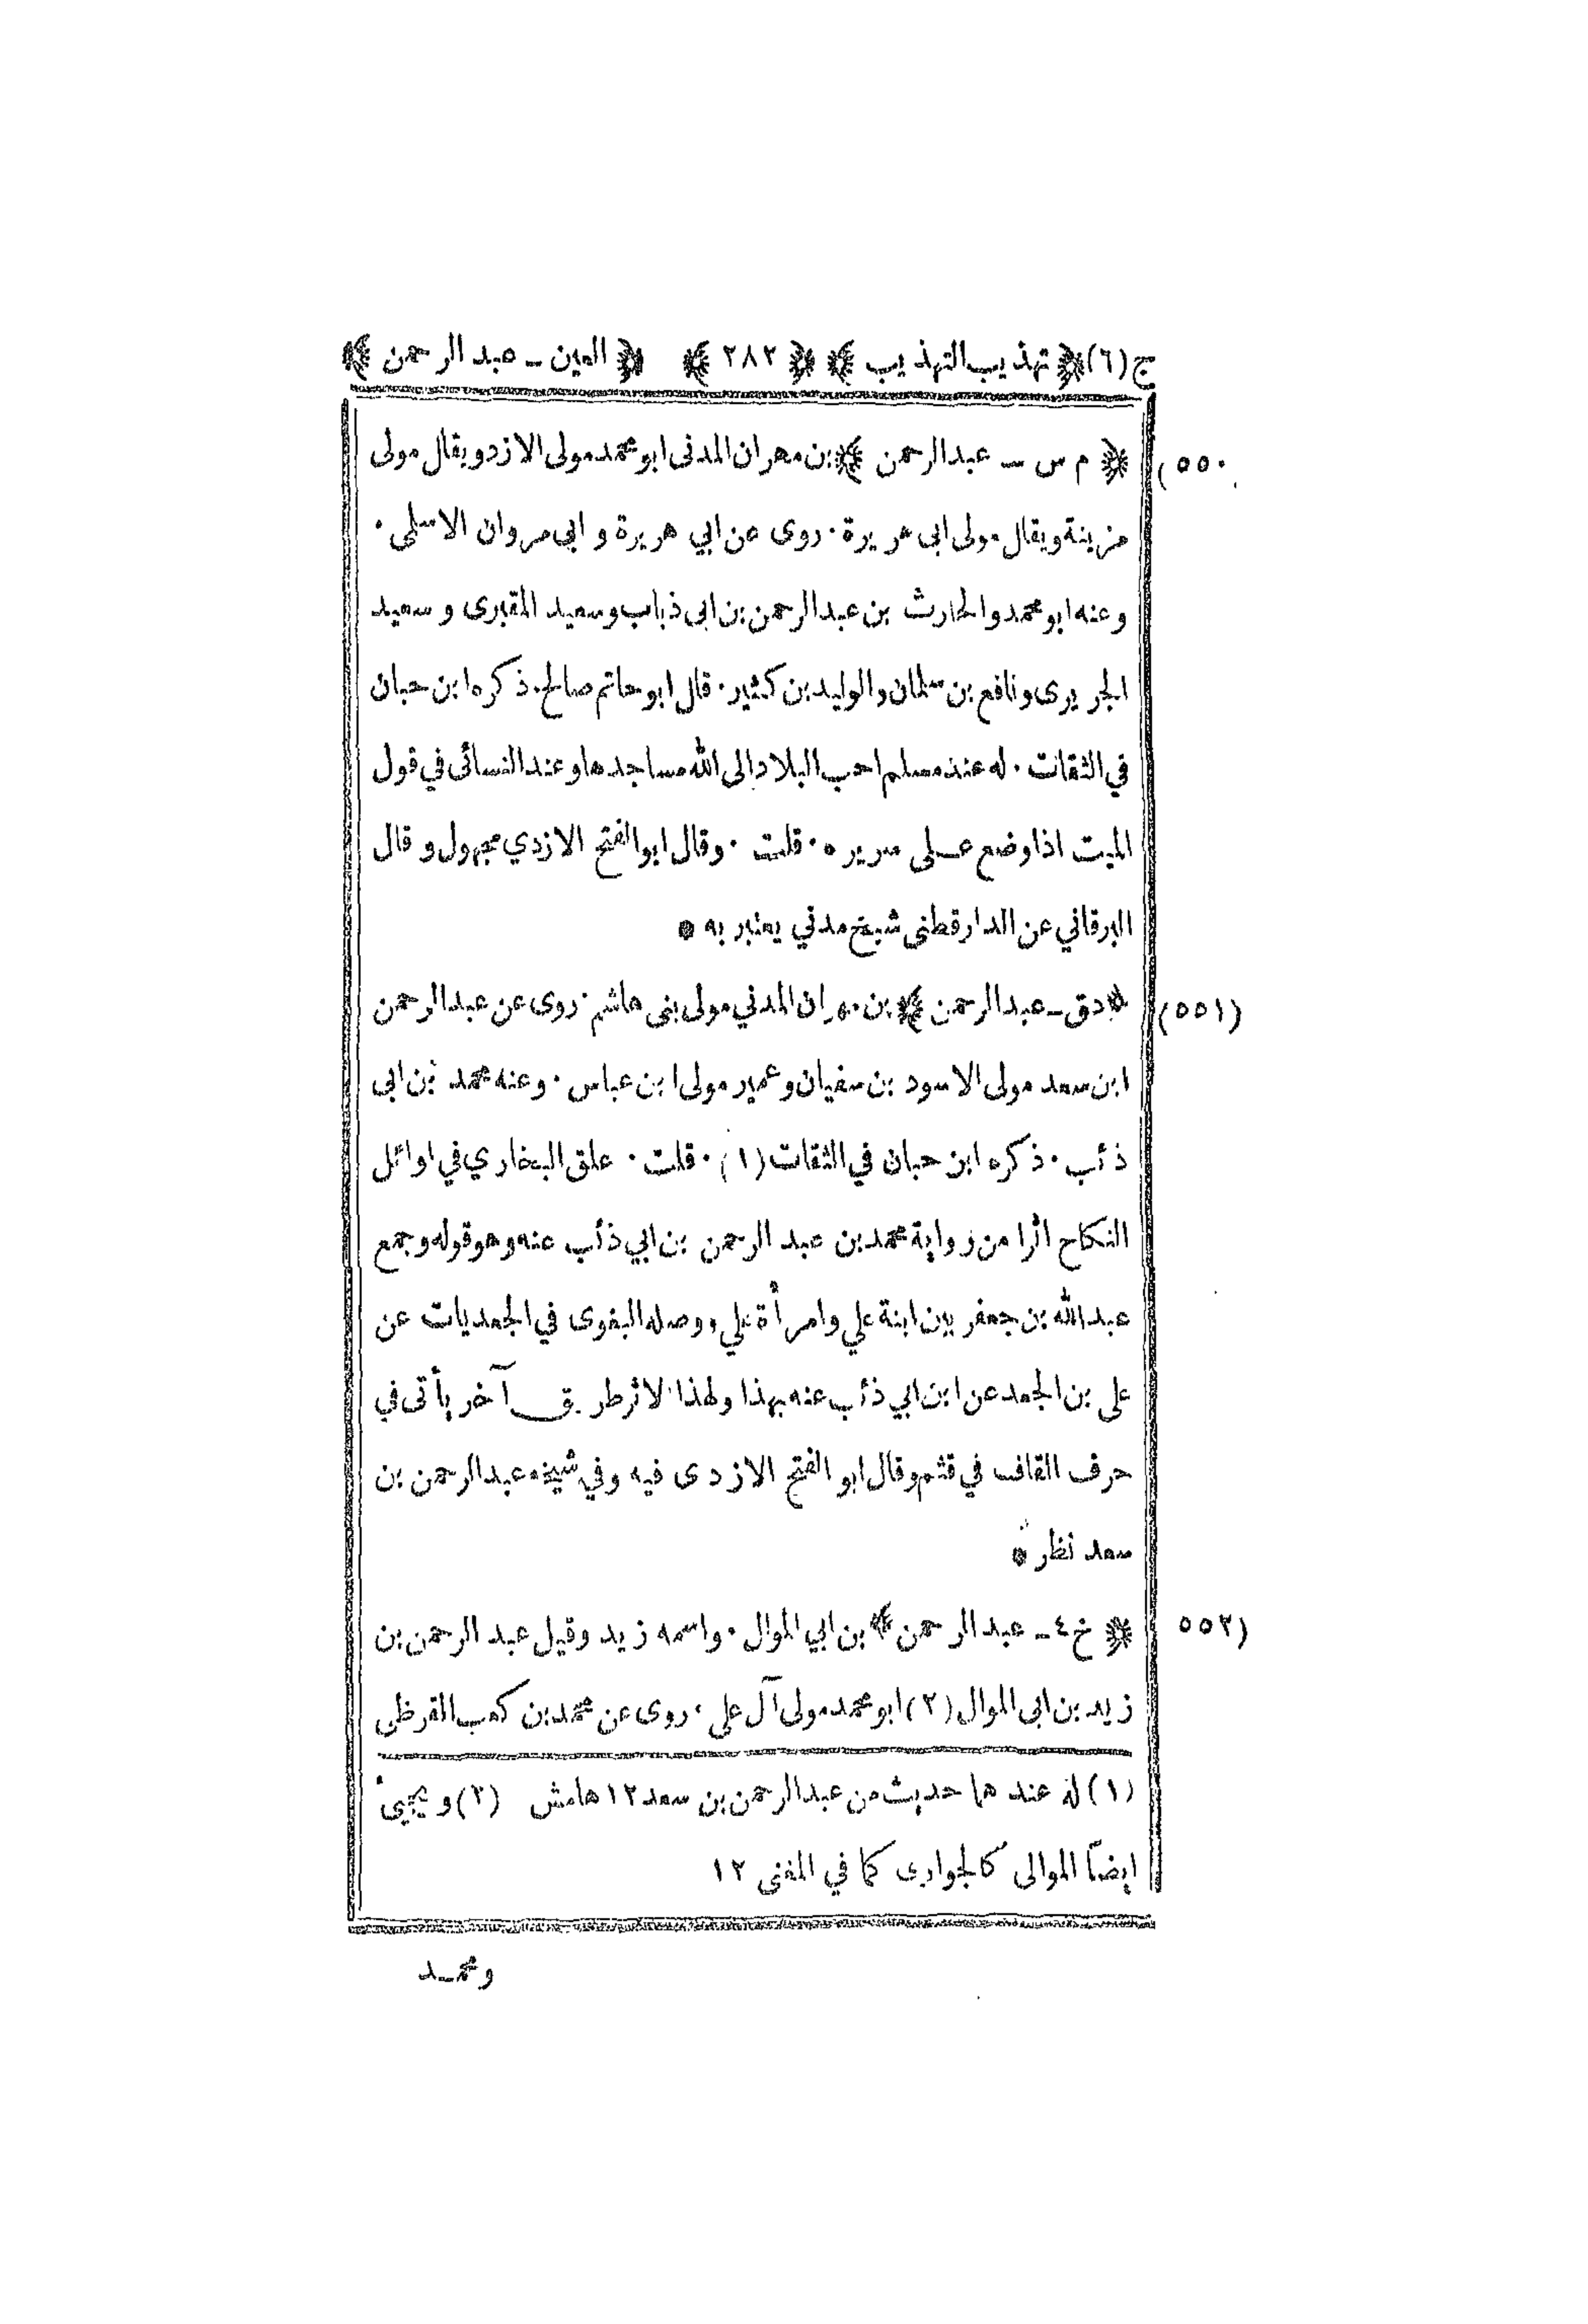 ج (٦) ﴿ تهذيب التهذيب ﴾ ﴿ ٢٨٢ ﴾ ﴿ العين ـ عبد الرحمن ﴾
(٥٥٠ ﴿ م س ـ عبد الرحمن ﴾ بن مهران المدنى ابو محمد مولى الازد ويقال مولى
مزينة ويقال مولى ابى هريرة . روى عن ابي هريرة و ابى مروان الاسلمى .
وعنه ابو محمد والحارث بن عبد الرحمن بن ابى ذباب وسعيد المقبرى و سعيد
الجريرى ونافع بن سلمان والوليد بن كثير . قال ابو حاتم صالح . ذكره ابن حبان
في الثقات . له عند مسلم احب البلاد الى الله مساجدها وعند النسائى في قول
الميت اذا وضع على سريره . قلت . وقال ابو الفتح الازدي مجهول و قال
البرقاني عن الدارقطنى شيخ مدني يعتبر به *
(٥٥١) ﴿ د ق ـ عبد الرحمن ﴾ بن مهران المدني مولى بنى هاشم . روى عن عبد الرحمن
ابن سعد مولى الاسود بن سفيان وعمير مولى ابن عباس . وعنه محمد بن ابى
ذئب . ذكره ابن حبان في الثقات (١) . قلت . علق البخاري في اوائل
النكاح اثرا من رواية محمد بن عبد الرحمن بن ابي ذئب عنه وهو قوله وجمع
عبد الله بن جعفر بين ابنة علي وامرأة علي ووصله البغوى في الجعديات عن
على بن الجعد عن ابن ابي ذئب عنه بهذا ولهذا الاثر طريق آخر يأتى في
حرف القاف في قثم وقال ابو الفتح الازدى فيه وفي شيخه عبد الرحمن بن
سعد نظر *
(٥٥٢ ﴿ خ ٤ ـ عبد الرحمن ﴾ بن ابي الموال . واسمه زيد وقيل عبد الرحمن بن
زيد بن ابى الموال (٢) ابو محمد مولى آل على . روى عن محمد بن كعب القرظى
(١) له عند هما حديث من عبد الرحمن بن سعد ١٢ هامش (٢) و يجيئ
ايضًا الموالى كالجوارى كما في المغنى ١٢
ومحمد